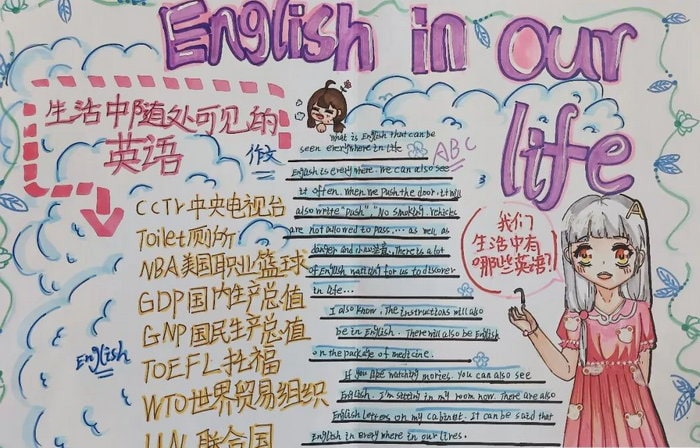 English in our
life
生活中随处可见的
英语
作文
ABC
What is English that can be
seen everywhere in life
English is everywhere. We can also see
it often. When we push the door, it will
also write "Push", "No smoking. Vehicks
are not allowed to pass, ... as well as
danger and
There is a lot
of English waiting for us to discover
in life...
I also know, The instructions will also
be in English. There will also be English
on the package of medicine.
If you are watching mories. You can also see
English. I'm sitting in my room now. There are also
English letters on my cabinet. It can be said that
English in everywhere in our lives.
CCTV中央电视台
Toilet厕所
NBA美国职业篮球
GDP国内生产总值
GNP国民生产总值
TOEFL托福
WTO世界贸易组织
UN 联合国
English
我们
生活中有
哪些英语?